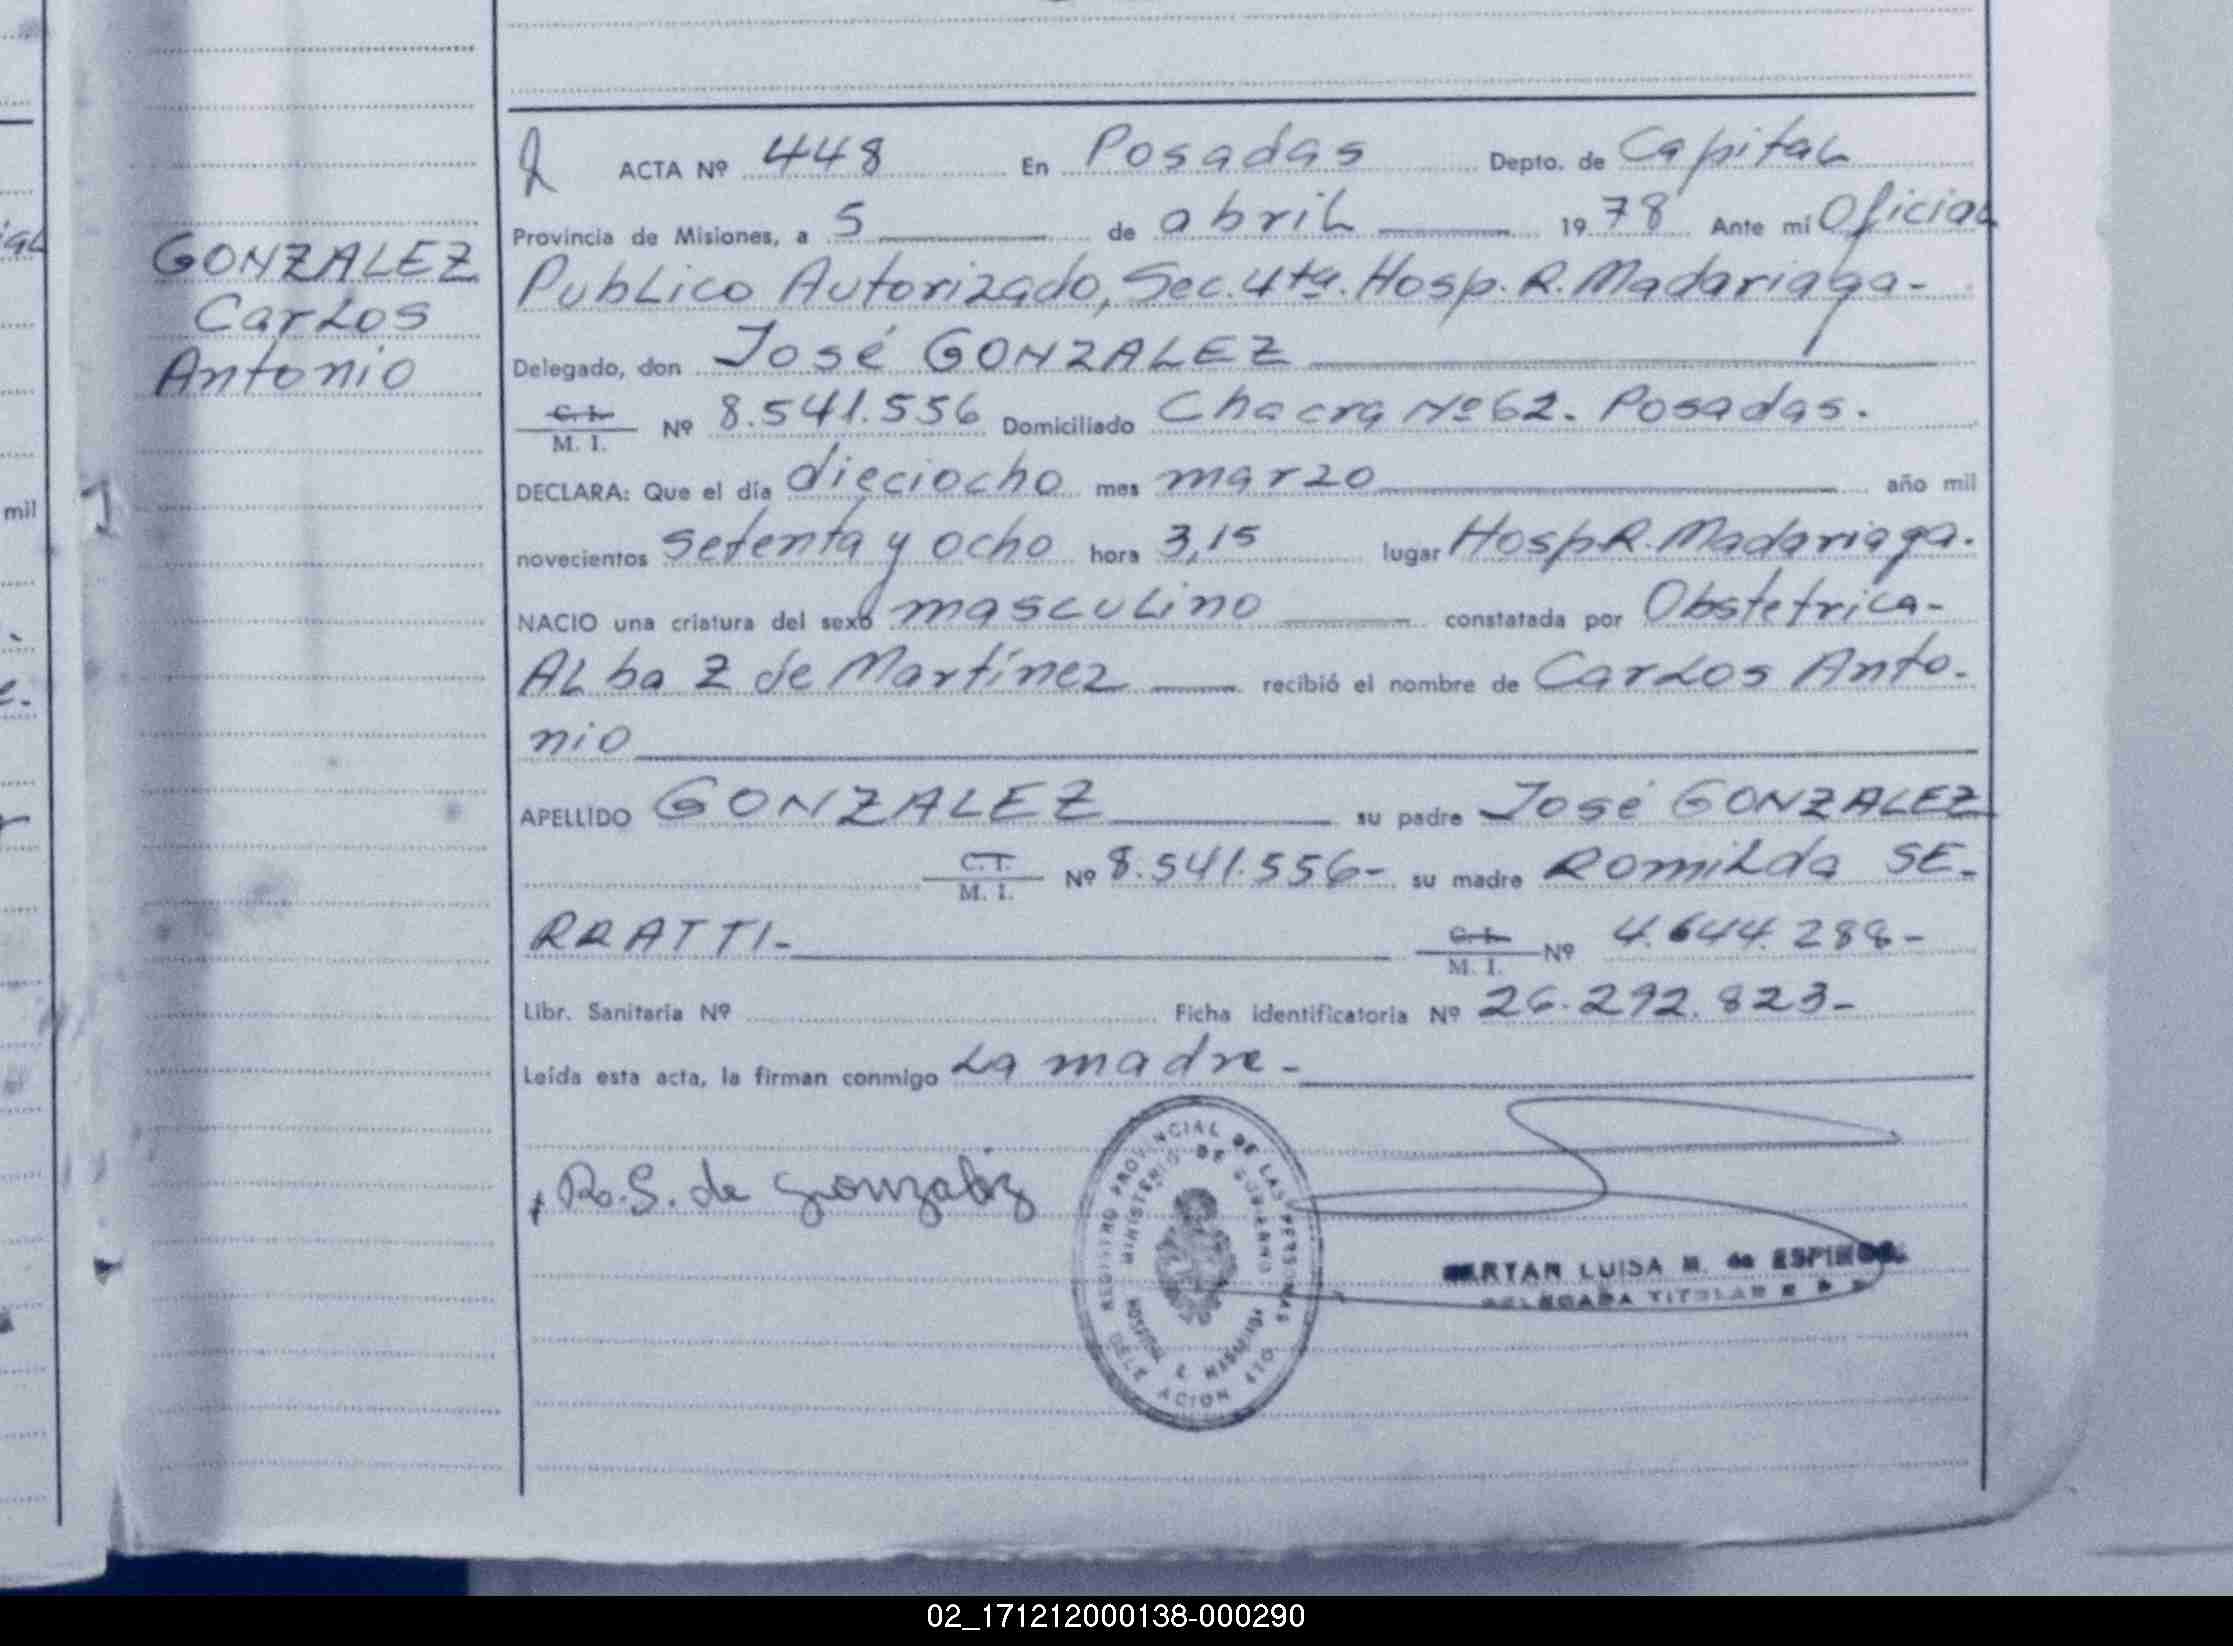 GONZALEZ
Carlos
Antonio
ACTA Nº 448 En Posadas Depto. de Capital
Provincia de Misiones, a 5 de abril 1978 Ante mí Oficial
Publico Autorizado, Sec. 4ta. Hosp. R. Madariaga-
Delegado, don José GONZALEZ
C. I. M. I. Nº 8.541.556 Domiciliado Chacra Nº 62. Posadas.
DECLARA: Que el día dieciocho mes marzo año mil
novecientos setenta y ocho hora 3,15 lugar Hosp R. Madariaga.
NACIO una criatura del sexo masculino constatada por Obstetrica-
Alba Z de Martínez recibió el nombre de Carlos Anto-
nio
APELLIDO GONZALEZ su padre José GONZALEZ
C. I. M. I. Nº 8.541.556- su madre Romilda SE-
RRATTI-
C. I. M. I. Nº 4.644.288-
Libr. Sanitaria Nº Ficha identificatoria Nº 26.292.823-
Leída esta acta, la firman conmigo La madre-
Ro. S. de Gonzalez
REGISTRO PROVINCIAL DE LAS PERSONAS
MINISTERIO DE GOBIERNO
HOSPITAL R MADARIAGA
LUISA M. de
DELEGADA TITULAR
mil
02_171212000138-000290